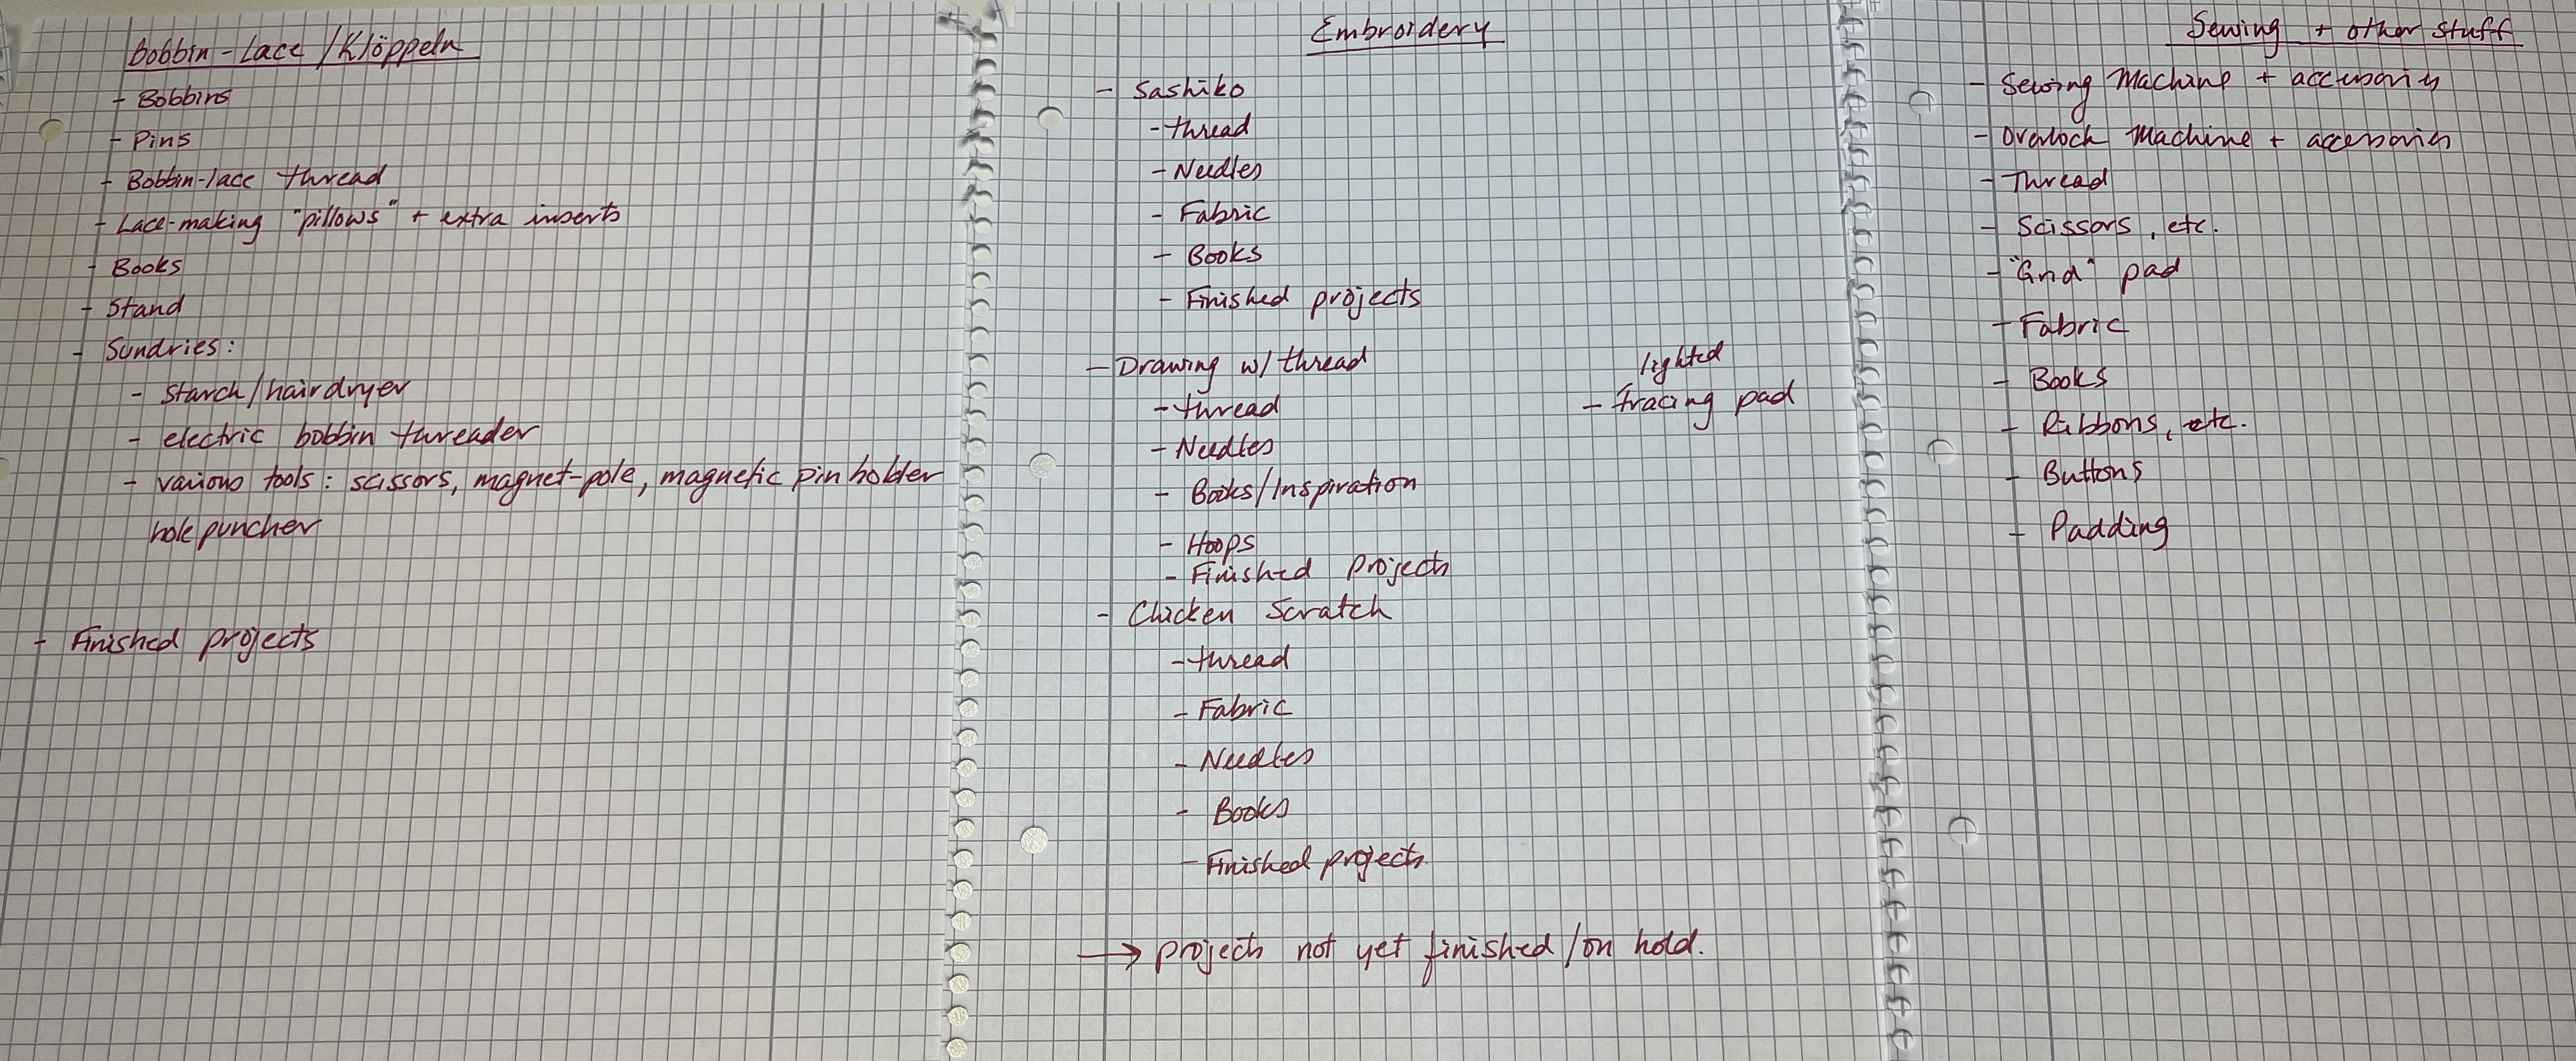 Bobbin-Lace/Klöppeln
- Bobbins
- Pins
- Bobbin-lace thread
- Lace-making "pillows" + extra inserts
- Books
- Stand
- Sundries:
- Starch/hairdryer
- electric bobbin threader
- various tools: scissors, magnet-pole, magnetic pin holder
hole puncher
- Finished projects
Embroidery
- Sashiko
- thread
- Needles
- Fabric
- Books
- Finished projects
- Drawing w/ thread
- thread
- Needles
- Books/Inspiration
- Hoops
- Finished Projects
lighted
- tracing pad
- Chicken Scratch
- thread
- Fabric
- Needles
- Books
- Finished projects.
→ projects not yet finished/on hold.
Sewing + other stuff
- Sewing Machine + accessories
- Overlock Machine + accessories
- Thread
- Scissors, etc.
- "Grid" pad
- Fabric
- Books
- Ribbons, etc.
- Buttons
- Padding